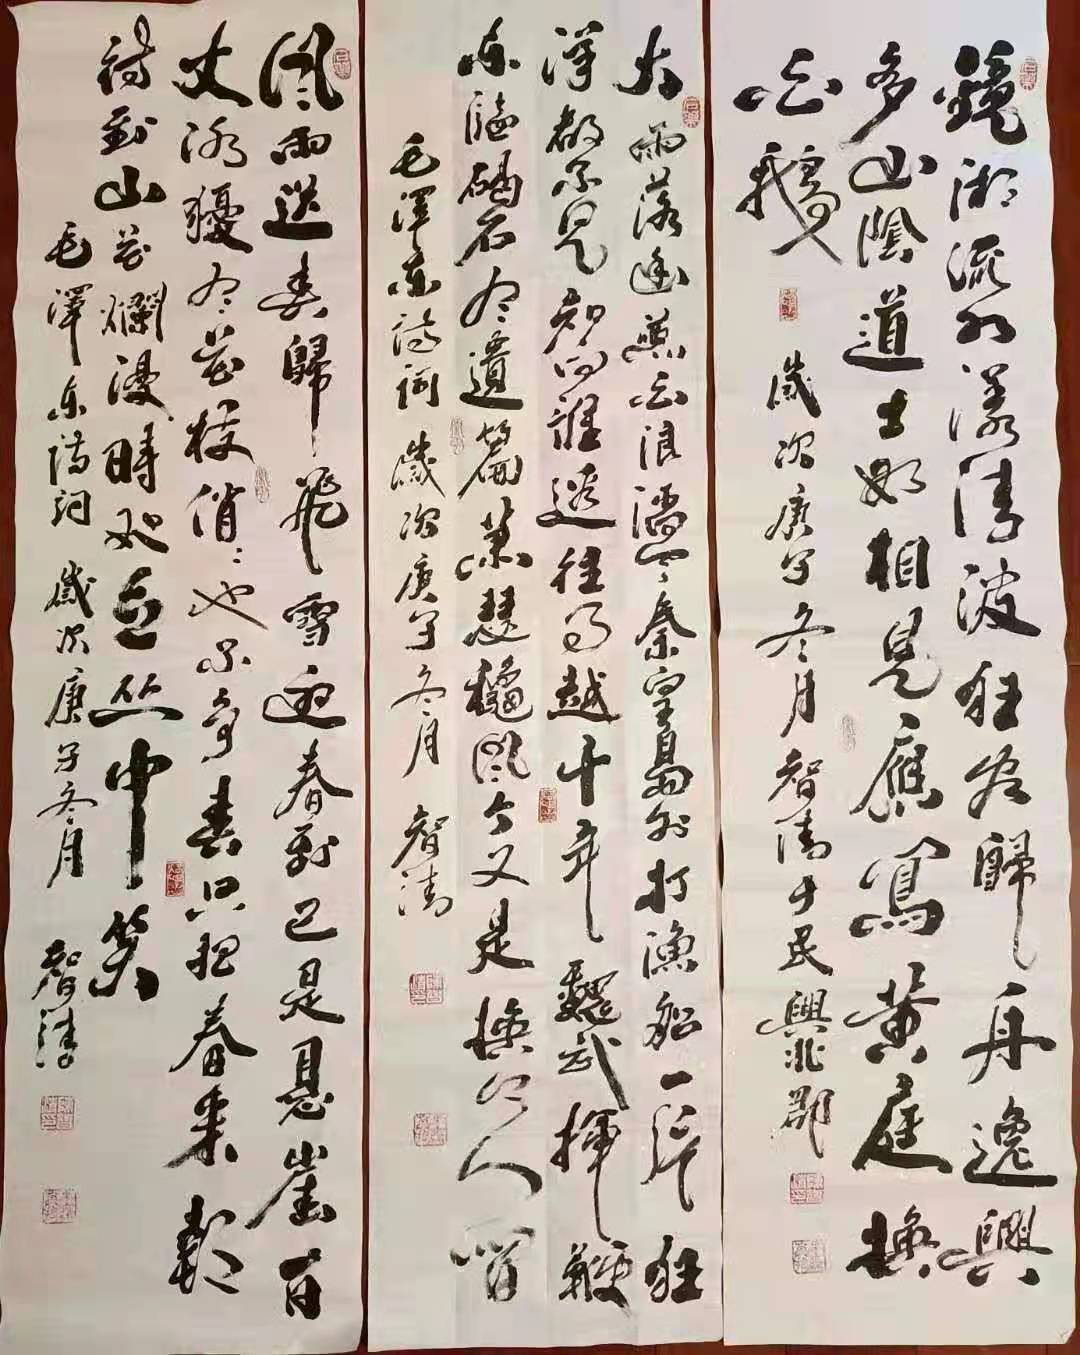 鏡湖流水漾清波狂客歸舟逸興
多山陰道士如相見應寫黃庭換
白鵝
歲次庚子冬月智濤于民興洮郡
大雨落幽燕白浪滔天秦皇島外打漁船一片狂
洋都不見知向誰邊往事越千年魏武揮鞭
東臨碣石有遺篇蕭瑟穐風今又是換了人間
毛澤東詩詞歲次庚子冬月智濤
風雨送春歸飛雪迎春到已是懸崖百
丈冰猶有花枝俏〻也不爭春只把春來報
待到山花爛漫時她在丛中笑
毛澤東詩詞歲次庚子冬月智濤